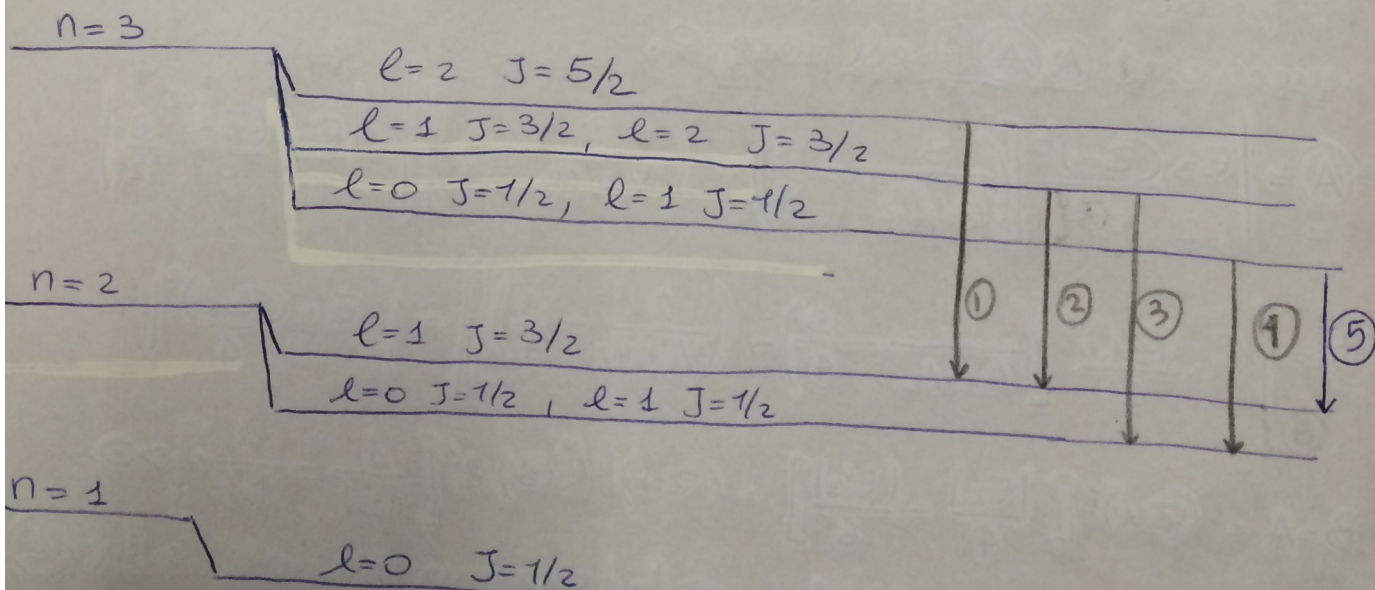 n=3
l=2 J=5/2
l=1 J=3/2, l=2 J=3/2
l=0 J=1/2, l=1 J=1/2
① ② ③ ④ ⑤
n=2
l=1 J=3/2
l=0 J=1/2, l=1 J=1/2
n=1
l=0 J=1/2